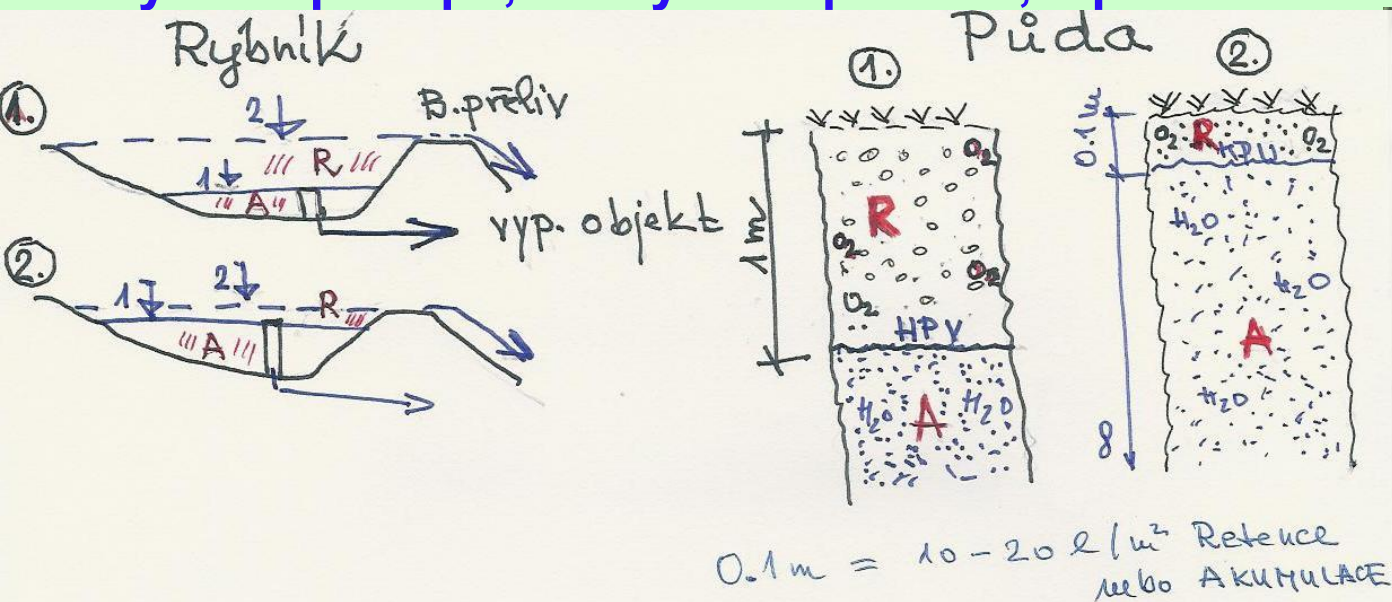 Rybník
1.
2
B. přeliv
R
1
A
vyp. objekt
2.
1
2
R
A
Půda
1.
O2
R
1m
O2
O2
O2
HPV
H2O
A
H2O
2.
0.1 m
O2
R
O2
HPV
H2O
H2O
A
H2O
8
0.1m = 10-20 l/m² Retence
nebo AKUMULACE